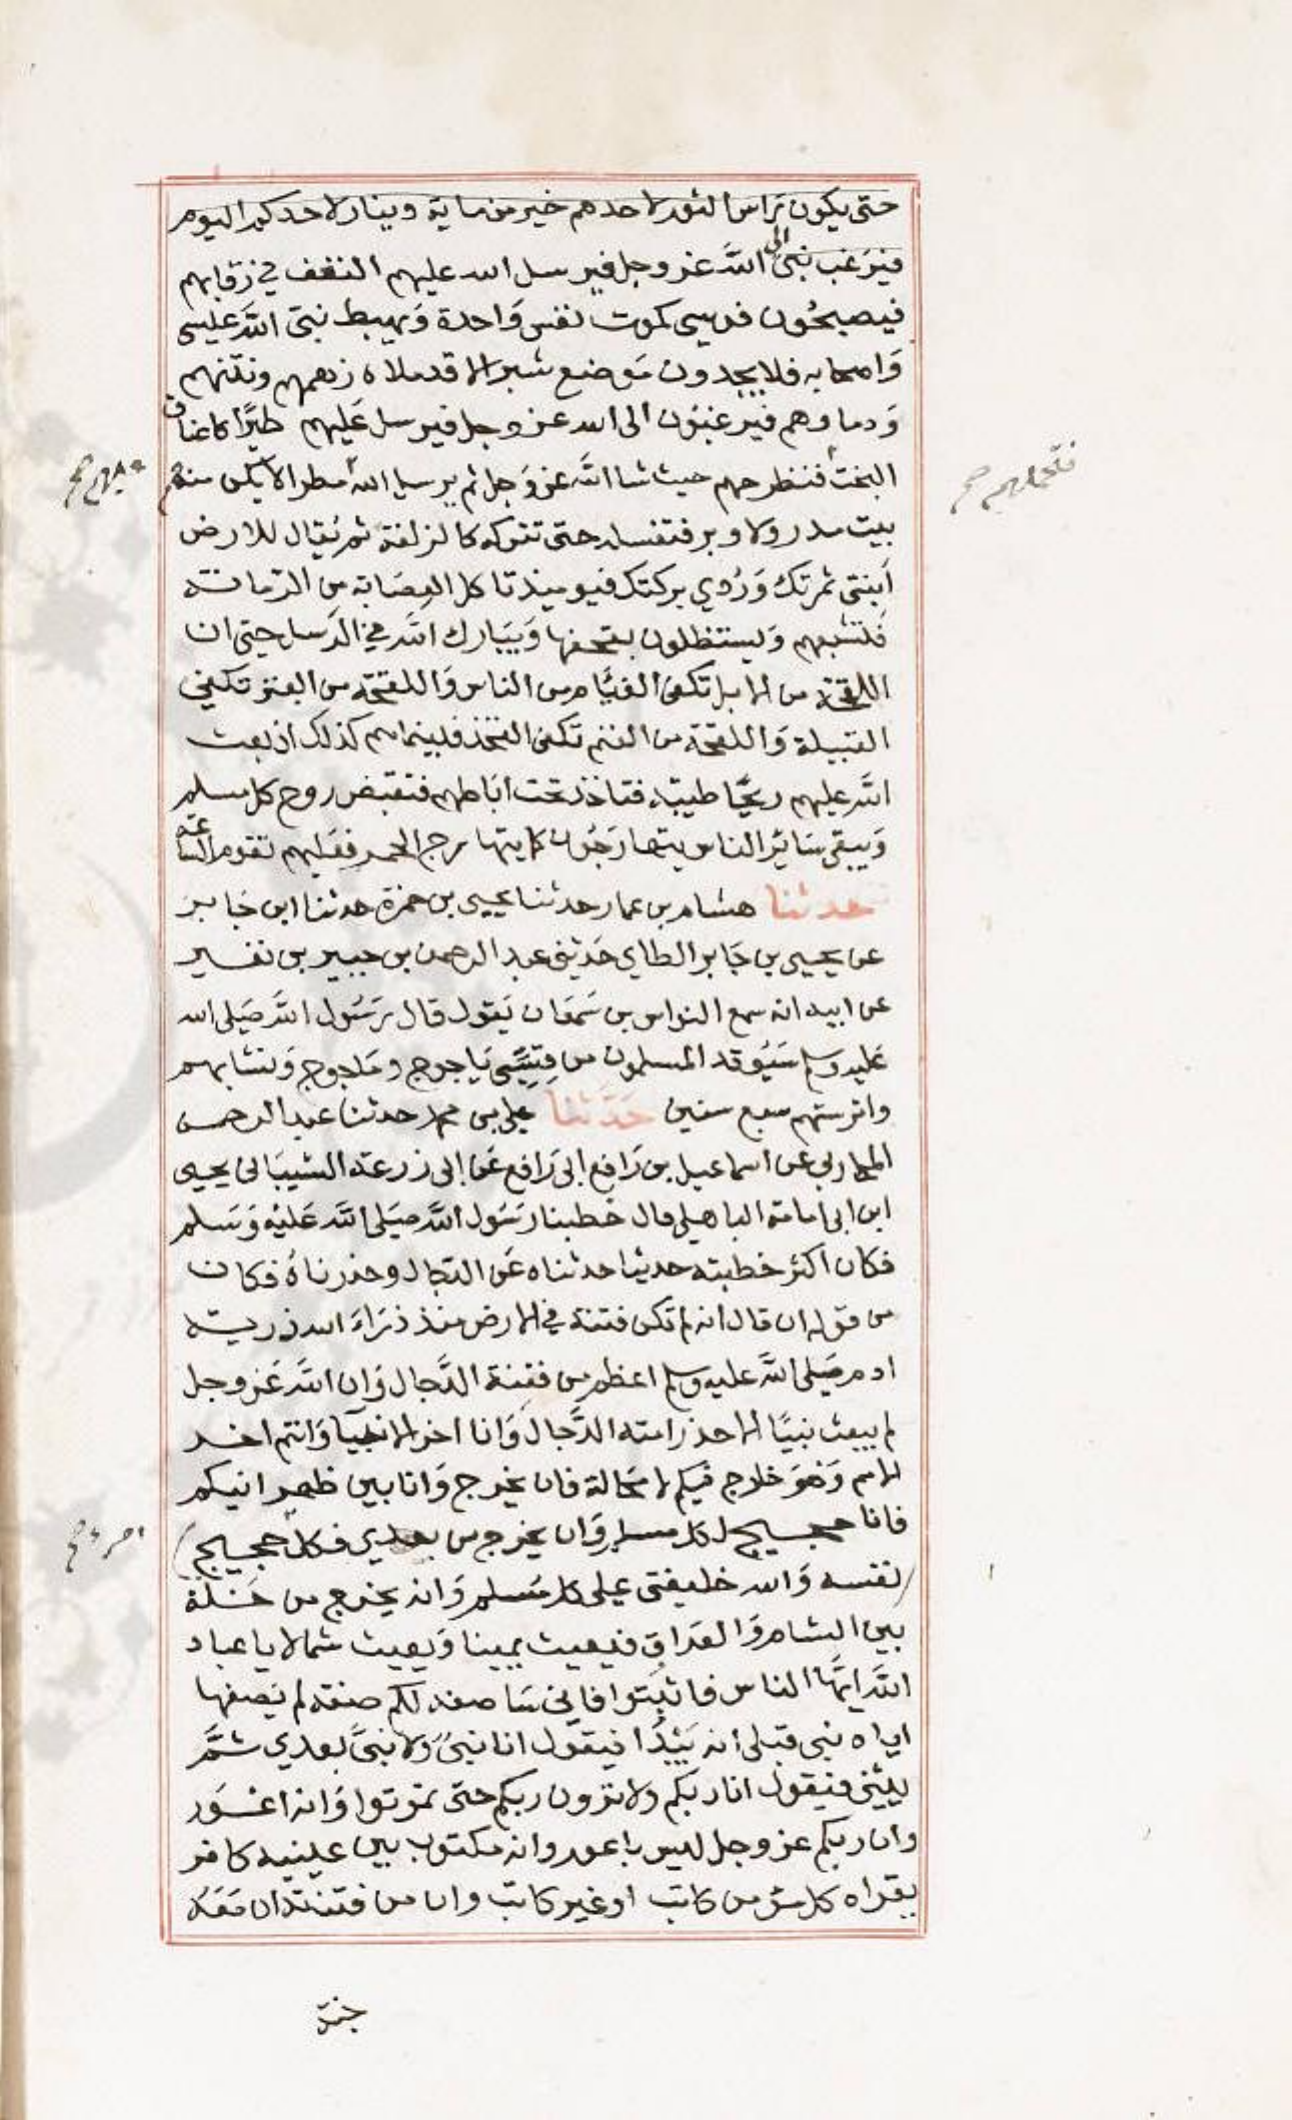 حتى يكون راس الثور لاحدهم خير من ماية دينار لاحدكم اليوم
فيرغب نبى الى الله عز وجل فيرسل الله عليهم النغف في رقابهم
فيصبحون فرسى كموت نفس واحدة ويهبط نبى الله عيسى
واصحابه فلا يجدون موضع شبر الا قد ملاه زهمهم ونتنهم
ودماوهم فيرغبون الى الله عز وجل فيرسل عليهم طيرا كاعناق
البخت فتطرحهم حيث شا الله عز وجل ثم يرسل الله مطرا لا يكن منه
بيت مدر ولا وبر فتغسله حتى تتركه كالزلفة ثم يقال للارض
انبتى ثمرتك وردي بركتك فيوميذ تاكل العصابة من الرمانة
فتشبعهم ويستظلون بقحفها ويبارك الله في الرسل حتى ان
اللقحة من الابل تكفى الفيام من الناس واللقحة من البقر تكفي
القبيلة واللقحة من الغنم تكفى الفخذ فبينما هم كذلك اذ بعث
الله عليهم ريحا طيبة فتاخذ تحت اباطهم فتقبض روح كل مسلم
ويبقى سائر الناس يتهارجون كما يتهارج الحمر فعليهم تقوم الساعة
حدثنا هشام بن عمار حدثنا يحيى بن حمزة حدثنا ابن جابر
عن يحيى بن جابر الطاي حدثني عبد الرحمن بن جبير بن نفير
عن ابيه انه سمع النواس بن سمعان يقول قال رسول الله صلى الله
عليه وسلم سيوقد المسلمون من قسي ياجوج وماجوج ونشابهم
واترستهم سبع سنين حدثنا علي بن محمد حدثنا عبد الرحمن
المحاربي عن اسماعيل بن رافع ابى رافع عن ابى زرعة الشيباني يحيى
ابن ابى امامة الباهلي قال خطبنا رسول الله صلى الله عليه وسلم
فكان اكثر خطبته حديثا حدثناه عن الدجال وحذرناه فكان
من قوله ان قال انه لم تكن فتنة في الارض منذ ذراء الله ذرية
ادم صلى الله عليه وسلم اعظم من فتنة الدجال وان الله عز وجل
لم يبعث نبيا الا حذر امته الدجال وانا اخر الانبيا وانتم اخر
الامم وهو خارج فيكم لا محالة فان يخرج وانا بين ظهرانيكم
فانا حجيج لكل مسلم وان يخرج من بعدي فكل حجيج
نفسه والله خليفتى على كل مسلم وانه يخرج من خلة
بين الشام والعراق فيعيث يمينا ويعيث شمالا يا عباد
الله ايها الناس فاثبتوا فانى ساصفه لكم صفة لم يصفها
اياه نبى قبلى انه يبدا فيقول انا نبى ولا نبى بعدي ثم
يثنى فيقول انا ربكم ولا ترون ربكم حتى تموتوا وانه اعور
وان ربكم عز وجل ليس باعور وانه مكتوب بين عينيه كافر
يقراه كل من كاتب او غير كاتب وان من فتنته ان معه
فتحملهم صح
جنة